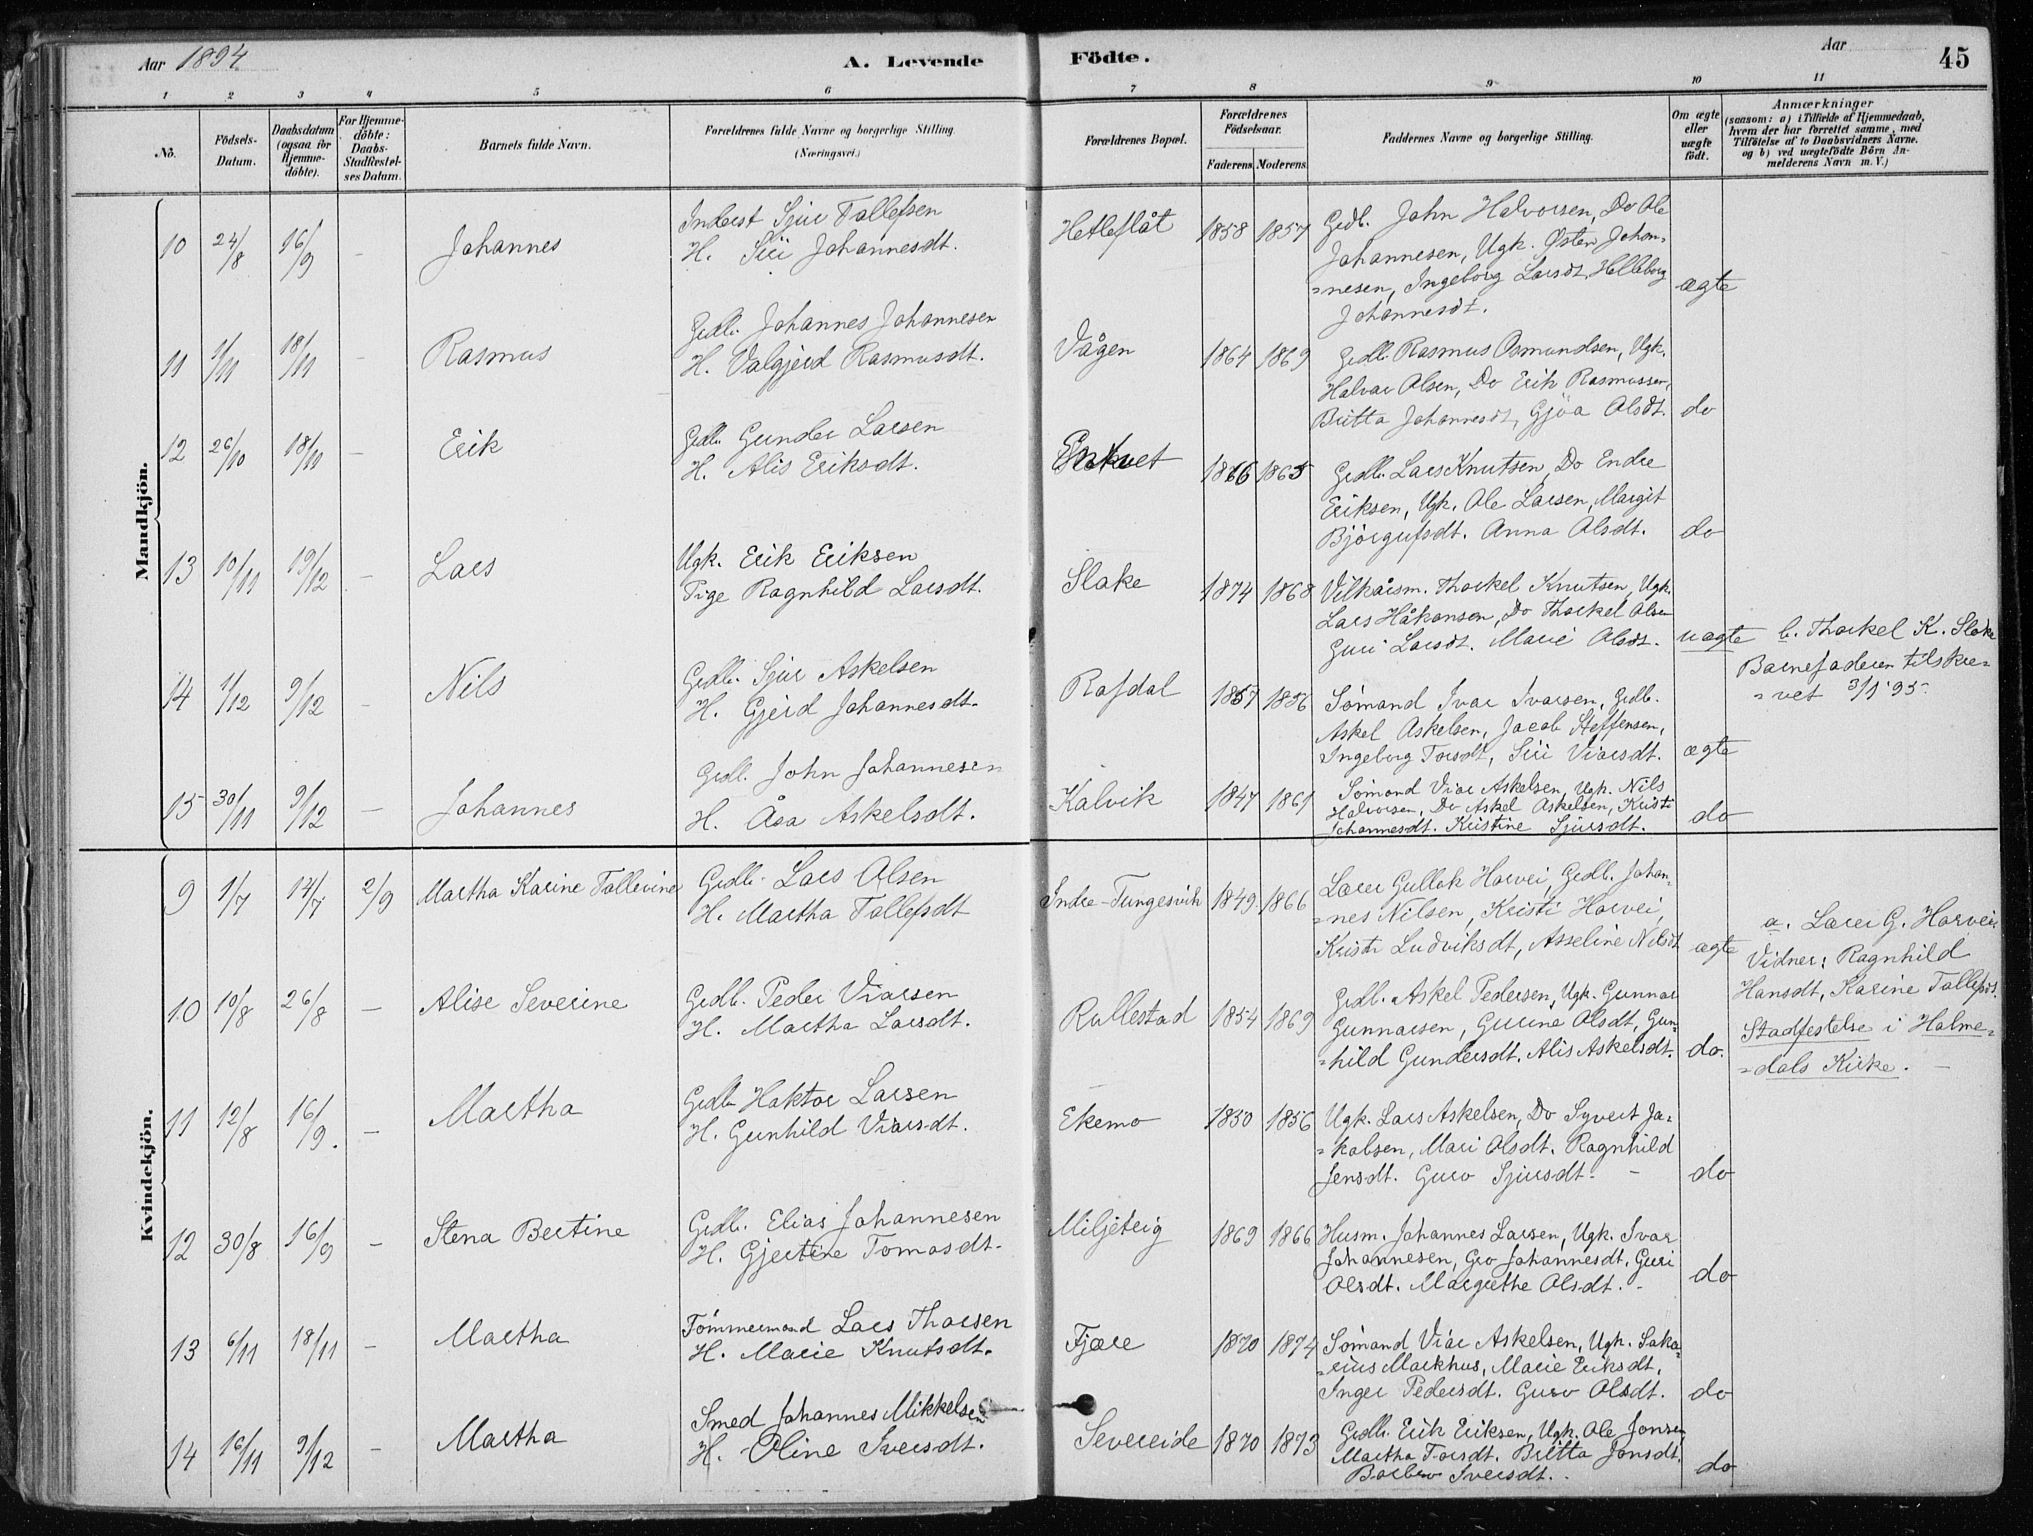 Aar 1894
A. Levende Födte.
Aar
45
1 2 3 4 5 6 7 8 9 10 11
No.
Födsels-Datum.
Daabsdatum (ogsaa for Hjemme-döbte).
For Hjemme-döbte: Daabs-Stadfestel-ses Datum.
Barnets fulde Navn.
Forældrenes fulde Navne og borgerlige Stilling. (Næringsvei.)
Forældrenes Bopæl.
Forældrenes Födselsaar.
Faderens. Moderens.
Faddernes Navne og borgerlige Stilling.
Om ægte eller uægte födt.
Anmærkninger
(saasom: a) i Tilfælde af Hjemmedaab, hvem der har forrettet samme, med Tilföielse af to Daabsvidners Navne. og b) ved uægtefödte Börn An-melderens Navn m. V.)
Mandkjön.
10 24/8 16/9 - Johannes
Inderst Sjur Tollefsen
H. Siri Johannesdt.
Hetleflåt 1858 1857
Grdb. John Halvorsen, Do Ole
Johannesen, Ugk. Østen Johan-
=nesen, Ingeborg Larsdt, Helleborg
Johannesdt.
ægte
11 1/11 18/11 - Rasmus
Grdb. Johannes Johannesen
H. Valgjerd Rasmusdt.
Vågen 1864 1869
Grdb. Rasmus Osmundsen, Ugk.
Halvar Olsen, Do Erik Rasmussen,
Britta Johannesdt, Gjöa Olsdt.
do
12 26/10 18/11 - Erik
Grdb. Gunder Larsen
H. Alis Eriksdt.
1866 1865
Grdb. Lars Knutsen, Do Endre
Eriksen, Ugk. Ole Larsen, Margit
Björgufsdt. Anna Olsdt.
do
13 10/11 19/12 - Lars
Ugk. Erik Eriksen
Pige Ragnhild Larsdt.
Slake 1874 1868
Vilkårsm. Thorkel Knutsen, Ugk.
Lars Håkonsen, Do Thorkel Olsen
Guri Larsdt. Marie Olsdt.
uægte
b. Thorkel K. Slake
Barnefaderen tilskre=
=vet 3/1 '95.
14 1/12 9/12 - Nils
Grdb. Sjur Askelsen
H. Gjerd Johannesdt.
Rafdal 1857 1856
Sømand Ivar Ivarsen, Grdb.
Askel Askelsen, Jacob Steffensen,
Ingeborg Torsdt, Siri Viarsdt.
ægte
15 30/11 9/12 - Johannes
Grdb. John Johannesen
H. Åsa Askelsdt.
Kalvik 1847 1861
Sømand Viar Askelsen, Ugk. Nils
Halvorsen, Do Askel Askelsen, Kristi
Johannesdt. Kristine Sjursdt.
do
Kvindekjön.
9 1/7 14/7 2/9 Martha Karine Tollevine
Grdb. Lars Olsen
H. Martha Tollefsdt
Indre-Tungesvik 1849 1866
Lærer Gullak Harvei, Grdb. Johan-
=nes Nilsen, Kristi Harvei,
Kristi Ludviksdt, Asseline Nilsdt
ægte
a. Lærer G. Harvei
Vidner: Ragnhild
Hansdt, Karine Tollefsdt.
Stadfestelse i Holme=
=dals Kirke. -
10 19/8 26/8 - Alise Severine
Grdb. Peder Viarsen
H. Martha Larsdt.
Rullestad 1854 1869
Grdb. Askel Pedersen, Ugk. Gunnar
Gunnarsen, Gurine Olsdt, Gun=
=hild Gundersdt. Alis Askelsdt.
do.
11 12/8 16/9. - Martha
Grdb Haktor Larsen
H. Gunhild Viarsdt.
Ekemo 1850 1856
Ugk. Lars Askelsen, Do Syvert Ja=
=kobsen, Mari Olsdt. Ragnhild
Jensdt. Guro Sjursdt. -
do
12 30/8 16/9 - Stena Bertine
Grdb. Elias Johannesen
H. Gjertine Tomasdt.
Miljeteig 1869 1866
Husm. Johannes Larsen, Ugk. Ivar
Johannesen, Gro Johannesdt. Guri
Olsdt. Margrethe Olsdt. -
do
13 6/11 18/11 - Martha
Tømmermand Lars Thorsen
H. Marie Knutsdt.
Fjære 1870 1874
Sømand Viar Askelsen, Ugk. Saka=
=rius Markhus, Marie Eriksdt,
Inger Pedersdt. Guro Olsdt.
do
14 16/11 9/12 - Martha
Smed Johannes Mikkelsen
H. Oline Iversdt.
Severeide 1870 1873
Grdb. Erik Eriksen, Ugk. Ole Jonsen,
Martha Torsdt. Britta Jonsdt.
Barbro Iversdt.
do